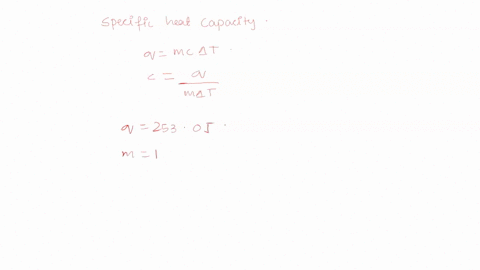 Specific heat capacity.
q = mc ΔT.
c = q / mΔT
q = 253.0J.
m = 1